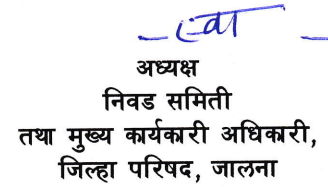 अध्यक्ष
निवड समिती
तथा मुख्य कार्यकारी अधिकारी,
जिल्हा परिषद, जालना